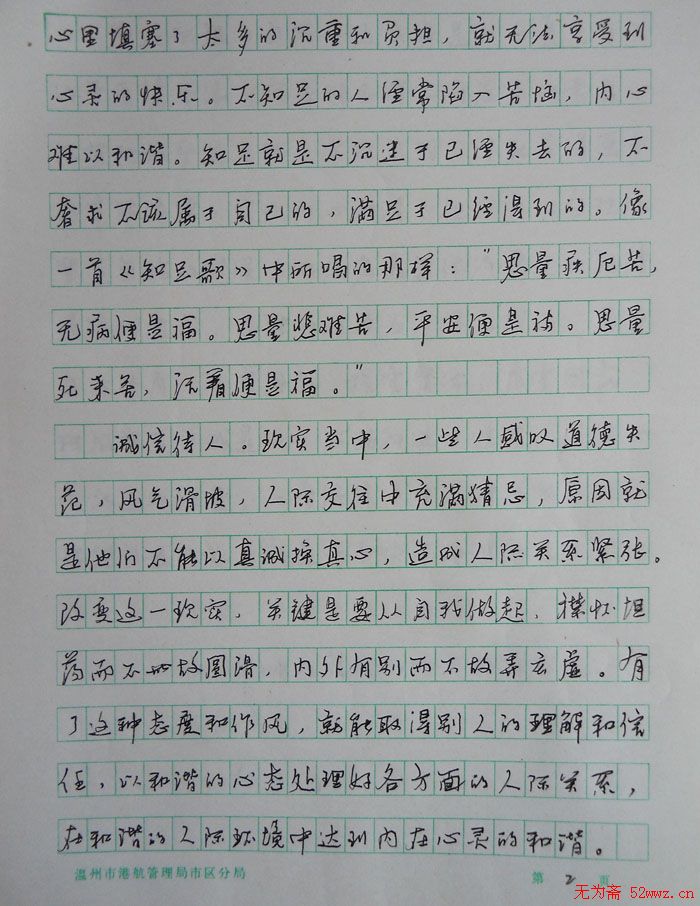 心里填塞了太多的沉重和负担，就无法享受到
心灵的快乐。不知足的人经常陷入苦恼，内心
难以和谐。知足就是不沉迷于已经失去的，不
奢求不该属于自己的，满足于已经得到的。像
一首《知足歌》中所唱的那样：“思量疾厄苦，
无病便是福。思量悲难苦，平安便是祷。思量
死来苦，活着便是福。”
诚信待人。现实当中，一些人感叹道德失
范，风气滑坡，人际交往中充满猜忌，原因就
是他们不能以真诚换真心，造成人际关系紧张。
改变这一现实，关键是要从自我做起，襟怀坦
荡而不世故圆滑，内外有别而不故弄玄虚。有
了这种态度和作风，就能取得别人的理解和信
任，以和谐的心态处理好各方面的人际关系，
在和谐的人际环境中达到内在心灵的和谐。
温州市港航管理局市区分局 第 2 页
无为斋 52wwz.cn